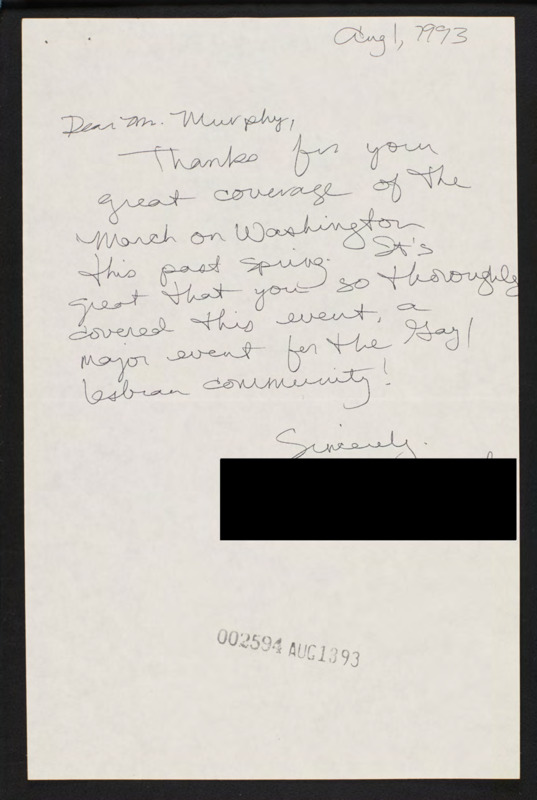 Aug 1, 1993
Dear Mr. Murphy,
Thanks for your
great coverage of the
March on Washington
this past spring. It's
great that you so thoroughly
covered this event, a
major event for the Gay/
lesbian community!
Sincerely,
002594 AUG1393